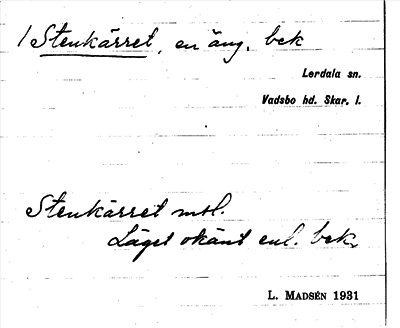 /Stenkärret, en äng. bek
Lerdala sn.
Vadsbo hd. Skar. l.
Stenkärret mtl.
Läget okänt enl. bek.
L. MADSÉN 1931